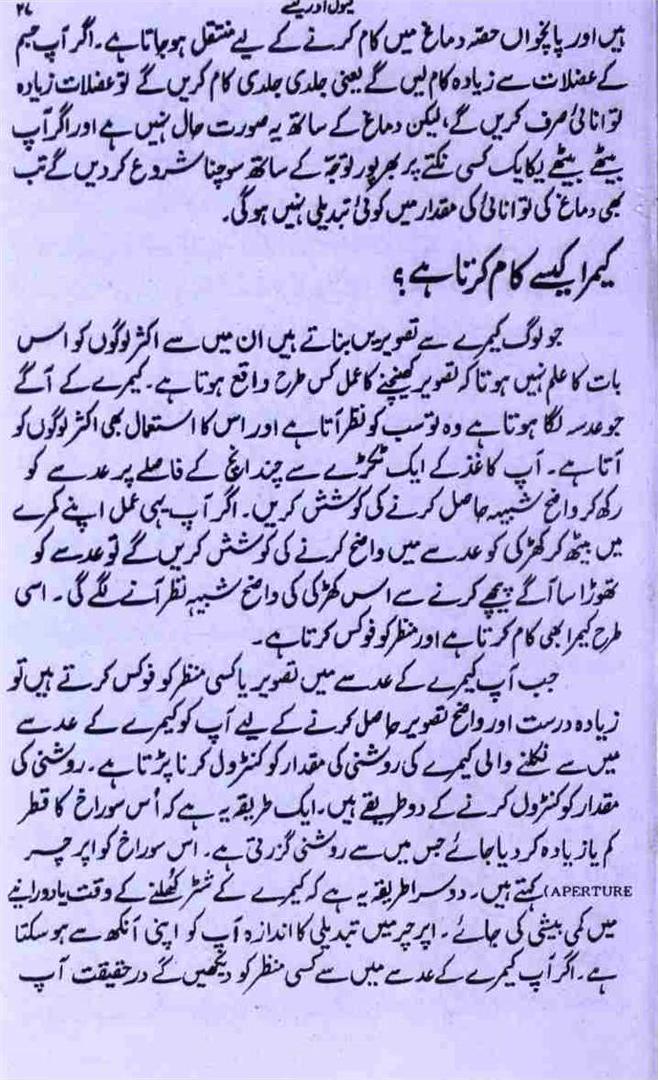 ۴۷ کیوں اور کیسے
ہیں اور پانچواں حصّہ دماغ میں کام کرنے کے لیے منتقل ہو جاتا ہے۔ اگر آپ جسم
کے عضلات سے زیادہ کام لیں گے یعنی جلدی جلدی کام کریں گے تو عضلات زیادہ
توانائی صرف کریں گے، لیکن دماغ کے ساتھ یہ صورت حال نہیں ہے اور اگر آپ
بیٹھے بیٹھے یکایک کسی نکتے پر بھرپور توجّہ کے ساتھ سوچنا شروع کر دیں گے تب
بھی دماغ کی توانائی کی مقدار میں کوئی تبدیلی نہیں ہوگی۔
کیمرا کیسے کام کرتا ہے؟
جو لوگ کیمرے سے تصویریں بناتے ہیں ان میں سے اکثر لوگوں کو اس
بات کا علم نہیں ہوتا کہ تصویر کھنچنے کا عمل کس طرح واقع ہوتا ہے۔ کیمرے کے آگے
جو عدسہ لگا ہوتا ہے وہ تو سب کو نظر آتا ہے اور اس کا استعمال بھی اکثر لوگوں کو
آتا ہے۔ آپ کاغذ کے ایک ٹکڑے سے چند انچ کے فاصلے پر عدسے کو
رکھ کر واضح شبیہہ حاصل کرنے کی کوشش کریں۔ اگر آپ یہی عمل اپنے کمرے
میں بیٹھ کر کھڑکی کو عدسے میں واضح کرنے کی کوشش کریں گے تو عدسے کو
تھوڑا سا آگے پیچھے کرنے سے اس کھڑکی کی واضح شبیہہ نظر آنے لگے گی۔ اسی
طرح کیمرا بھی کام کرتا ہے اور منظر کو فوکس کرتا ہے۔
جب آپ کیمرے کے عدسے میں تصویر یا کسی منظر کو فوکس کرتے ہیں تو
زیادہ درست اور واضح تصویر حاصل کرنے کے لیے آپ کو کیمرے کے عدسے
میں سے نکلنے والی کیمرے کی روشنی کی مقدار کو کنٹرول کرنا پڑتا ہے۔ روشنی کی
مقدار کو کنٹرول کرنے کے دو طریقے ہیں۔ ایک طریقہ یہ ہے کہ اُس سوراخ کا قطر
کم یا زیادہ کر دیا جائے جس میں سے روشنی گزرتی ہے۔ اس سوراخ کو اپرچر
APERTURE) کہتے ہیں۔ دوسرا طریقہ یہ ہے کہ کیمرے کے شٹر کھلنے کے وقت یا دورانیے
میں کمی بیشی کی جائے۔ اپرچر میں تبدیلی کا اندازہ آپ کو اپنی آنکھ سے ہو سکتا
ہے۔ اگر آپ کیمرے کے عدسے میں سے کسی منظر کو دیکھیں گے درحقیقت آپ